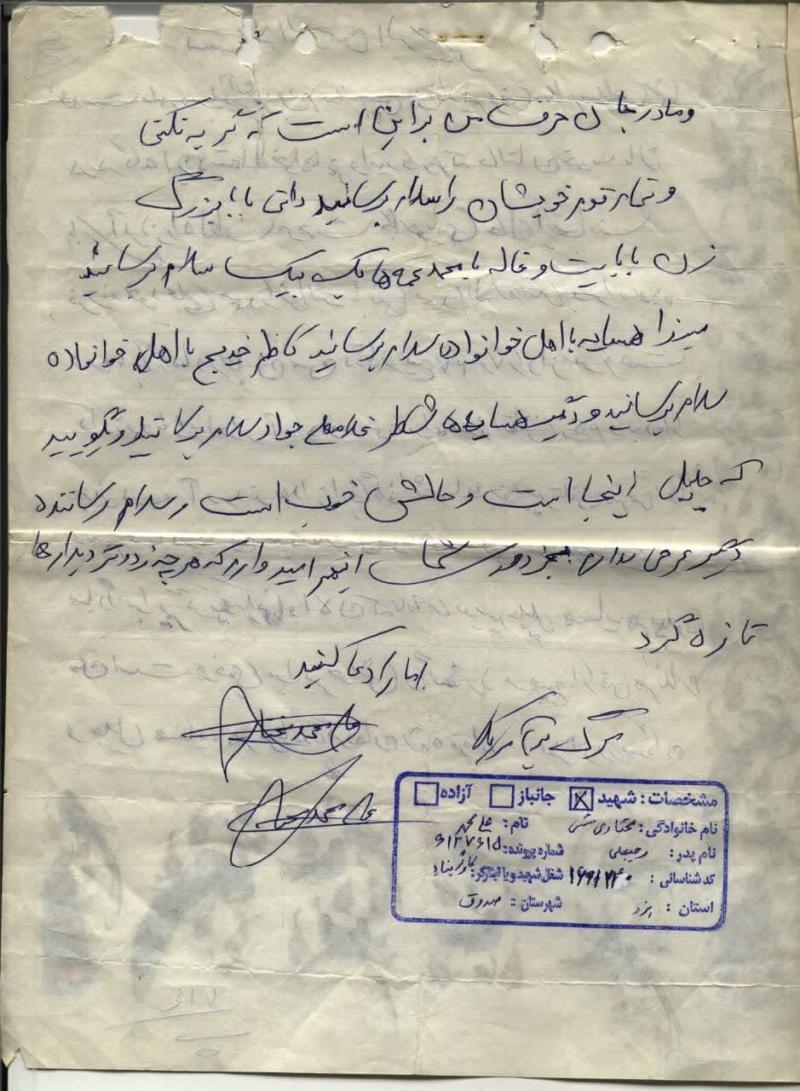 ومادر جان حرف من براین است که گریه نکنی
و تمام قوم خویشان را سلام برسانید دائی بابا بزرگ
زن بابایت و خاله با محمد عمه ها یک بیک سلام برسانید
میرزا همسایه با اهل خوانواده سلام برسانید کاظم خدیج با اهل خوانواده
سلام برسانید و دیگر همسایه ها شاطر غلامعلی جواد سلام برسانید و بگویید
که جلیل اینجا است و حالش خوب است و سلام رساننده
دیگر عرضی ندارم بجز دوری شما انهم امید وارم که هر چه زودتر دیدارها
تازه گرد
امارا دعا کنید
مرگ بر آمریکا
علی محمد مختاری
علی محمد مختاری
مشخصات : شهید ☒ جانباز ☐ آزاده ☐
نام خانوادگی : مختاری نام : علی محمد
نام پدر : رجبعلی شماره پرونده : ۶۱۲۷۶۱۵
کد شناسائی : ۱۶۶۱۲۴۰ شغل شهید و یا ایثارگر :
استان : یزد شهرستان : صدوق